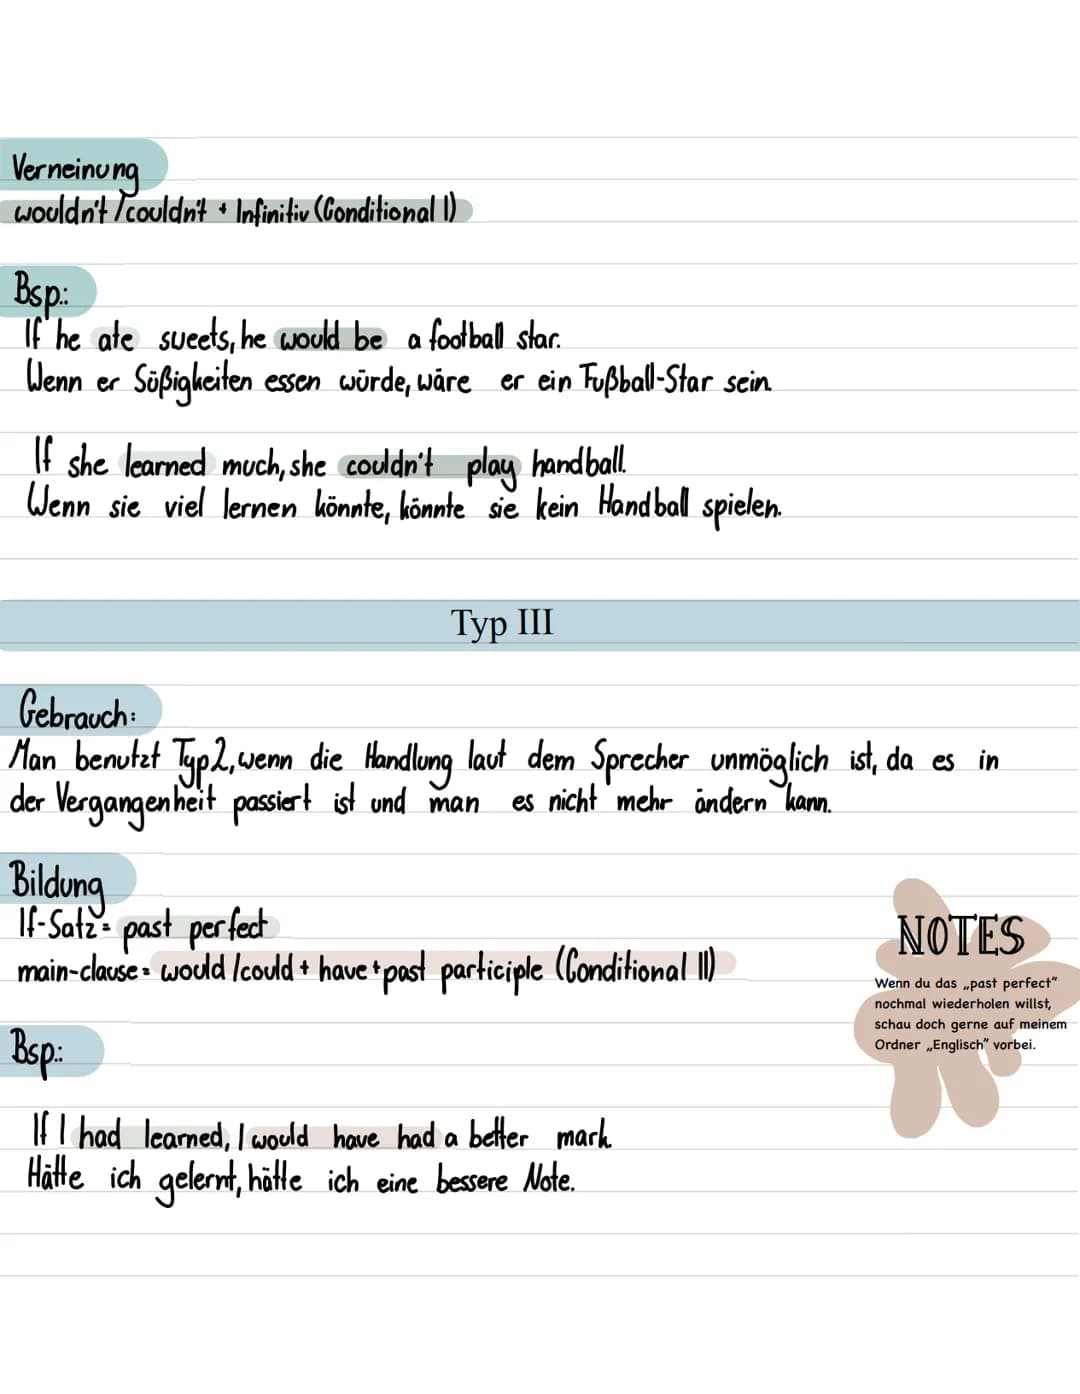 Verneinung
wouldn't/couldn't + Infinitiv (Conditional I)
Bsp.:
If he ate sweets, he would be a football star.
Wenn er Süßigkeiten essen würde, wäre er ein Fußball-Star sein.
If she learned much, she couldn't play handball.
Wenn sie viel lernen könnte, könnte sie kein Handball spielen.
Typ III
Gebrauch:
Man benutzt Typ2, wenn die Handlung laut dem Sprecher unmöglich ist, da es in
der Vergangenheit passiert ist und man es nicht mehr ändern kann.
Bildung
If-Satz= past perfect
main-clause= would/could + have + past participle (Conditional II)
NOTES
Wenn du das „past perfect"
nochmal wiederholen willst,
schau doch gerne auf meinem
Ordner „Englisch" vorbei.
Bsp.:
If I had learned, I would have had a better mark.
Hätte ich gelernt, hätte ich eine bessere Note.